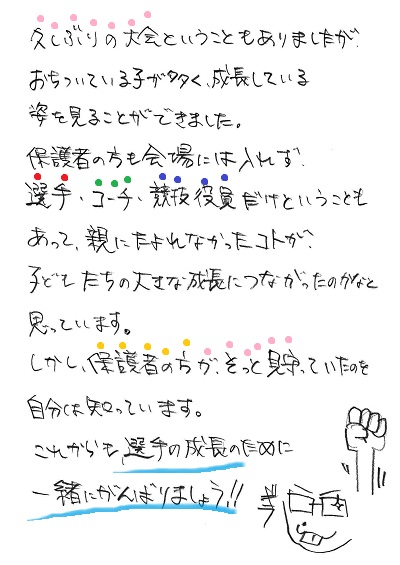 久しぶりの大会ということもありましたが、
おちついている子が多く、成長している
姿を見ることができました。
保護者の方も会場には入れず、
選手・コーチ・競技役員だけということも
あって、親にたよれなかったコトが、
子どもたちの大きな成長につながったのかなと
思っています。
しかし、保護者の方が、そっと見守っていたのを
自分は知っています。
これからも、選手の成長のために
一緒にがんばりましょう!!